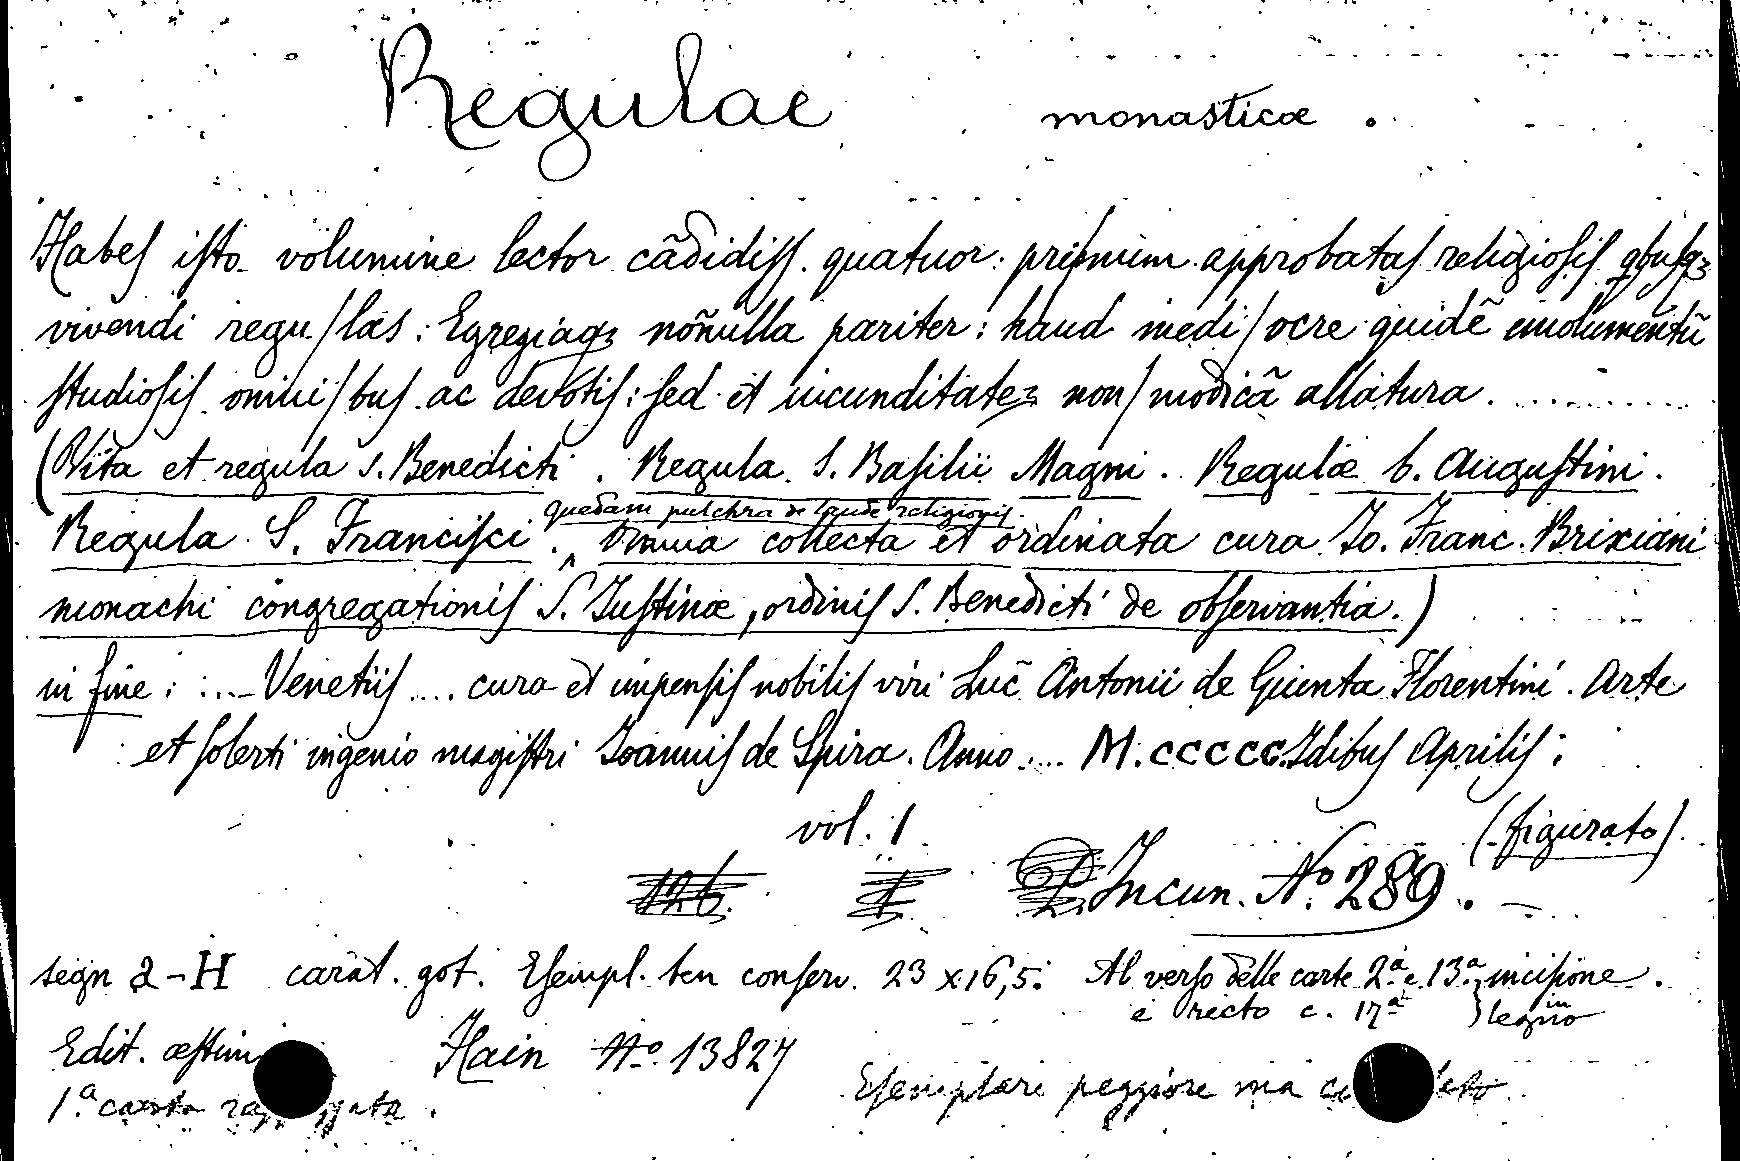 Regulae monasticæ .
Habes isto volumine lector cãdidiss. quatuor: primum approbatas religiosis qbusqꝫ
vivendi regu/las: Egregiaqꝫ noñulla pariter: haud medi/ocre quidẽ emolumentũ
studiosis omni/bus ac devotis: sed et iucunditateꝫ non/modicã allatura. ...........
(Vita et regula s. Benedicti. Regula S. Basilii Magni. Regulæ b. Augustini.
quedam pulchra de laude religionis.
Regula S. Francisci . ‸ Omnia collecta et ordinata cura Jo. Franc. Brixiani
monachi congregationis S. Justinæ, ordinis S. Benedicti de observantia.)
in fine: ... Venetiis .... cura et impensis nobilis viri Luc̃ Antonii de Giunta Florentini. Arte
et solerti ingenio magistri Joannis de Spira. Anno .... M.ccccc. Idibus Aprilis:
vol. 1 (figurato).
Incun. Nº. 289. –
segn a-H carat. got. Esempl. ben conserv. 23 x 16,5. Al verso delle carte 2.ª e 13.ª incisione.
e recto c. 17ª } in legno
Edit. æstim Hain Nº. 13827
1.ª carta Esemplare peggiore ma